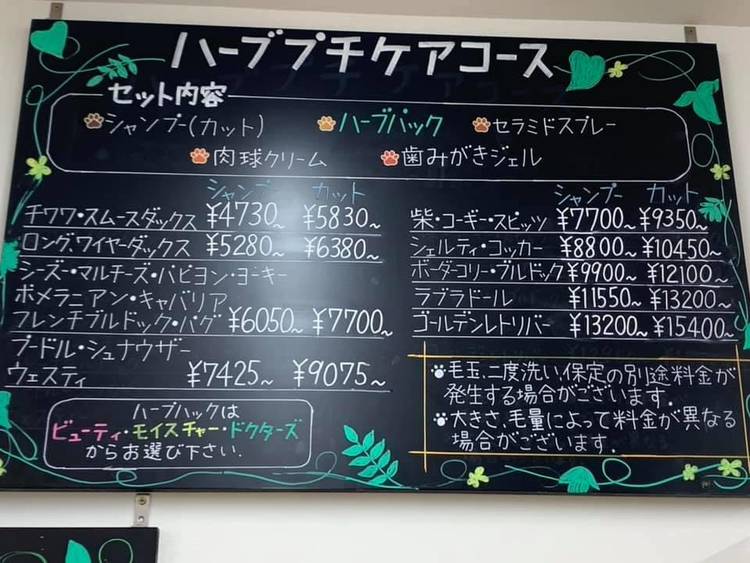 ハーブプチケアコース
セット内容
シャンプー(カット) ハーブパック セラミドスプレー
肉球クリーム 歯みがきジェル
シャンプー カット
チワワ・スムースダックス ¥4730~ ¥5830~
ロング,ワイヤーダックス ¥5280~ ¥6380~
シーズー・マルチーズ・パピヨン・ヨーキー
ポメラニアン・キャバリア
フレンチブルドック・パグ ¥6050~ ¥7700~
プードル・シュナウザー
ウェスティ ¥7425~ ¥9075~
ハーブパックは
ビューティ・モイスチャー・ドクターズ
からお選び下さい.
シャンプー カット
柴・コーギー・スピッツ ¥7700~ ¥9350~
シェルティ・コッカー ¥8800~ ¥10450~
ボーダーコリー・ブルドック ¥9900~ ¥12100~
ラブラドール ¥11550~ ¥13200~
ゴールデンレトリバー ¥13200~ ¥15400~
毛玉,二度洗い,保定の別途料金が
発生する場合がございます.
大きさ,毛量によって料金が異なる
場合がございます.